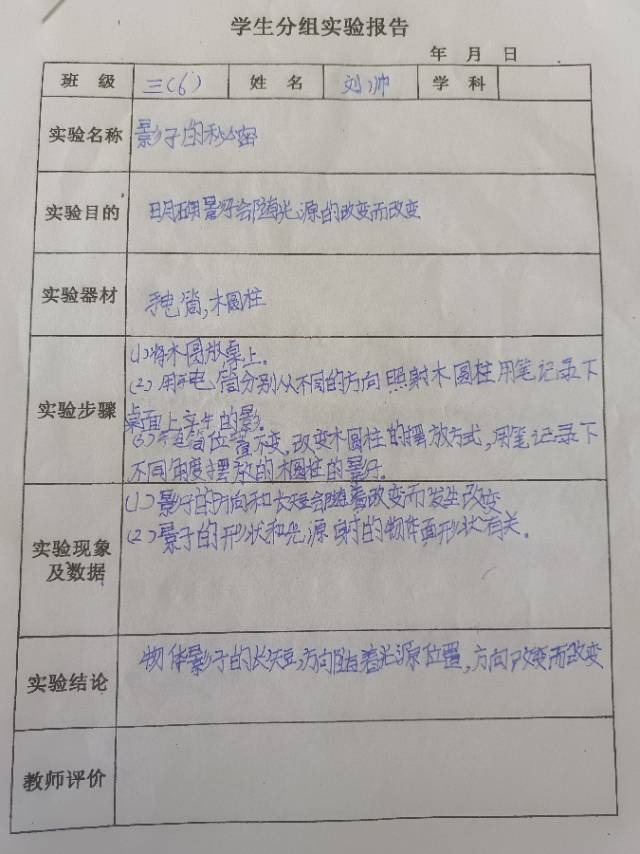 学生分组实验报告
年 月 日
班 级 三(6) 姓 名 刘帅 学 科
实验名称 影子的秘密
实验目的 明确影子会随光源的改变而改变
实验器材 手电筒,木圆柱
(1)将木圆放桌上。
(2)用手电筒分别从不同的方向照射木圆柱用笔记录下
实验步骤 桌面上产生的影。
(3)手电筒位置不变,改变木圆柱的摆放方式,用笔记录下
不同角度摆放的木圆柱的影子。
(1)影子的方向和长短会随着改变而发生改变
实验现象及数据 (2)影子的形状和光源射的物体面形状有关。
实验结论 物体影子的长短,方向随着光源位置,方向改变而改变
教师评价